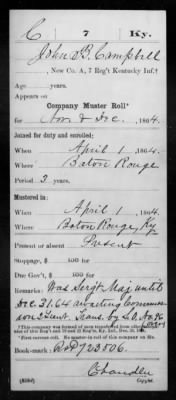 C 7 Ky.
John B. Campbell
, New Co. A, 7 Reg't Kentucky Inf.†
Age years.
Appears on
Company Muster Roll*
for Nov & Dec, 1864.
Joined for duty and enrolled:
When April 1, 1864.
Where Baton Rouge
Period 3 years.
Mustered in:
When April 1, 1864.
Where Baton Rouge, Ky
Present or absent Present
Stoppage, $ 100 for
Due Gov't, $ 100 for
Remarks: Was Sergt Maj. until
Dec. 31. 64 awaiting Commis
sion 2 Lieut. Trans. by S.O. No 96
*This company was formed of men transferred from
Book-mark: R&P 723506.
Chandler
(858d) Copyist.